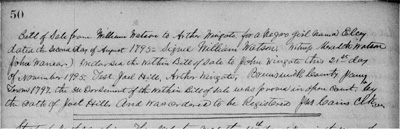 50
Bill of Sale from William Watson to Arthur Wingate for a negro girl named
dated the Second day of August 1795. Signed William Watson
John Endorsed the Within Bill of Sale to John Wingate this 21st day
of November 1795. Test Joel Hill. Arthur Wingate, Brunswick County
Term 1797. the of the Within Bill of Sale was proved in open Court by
the Oath of Joel Hills And was ordered to be Registered